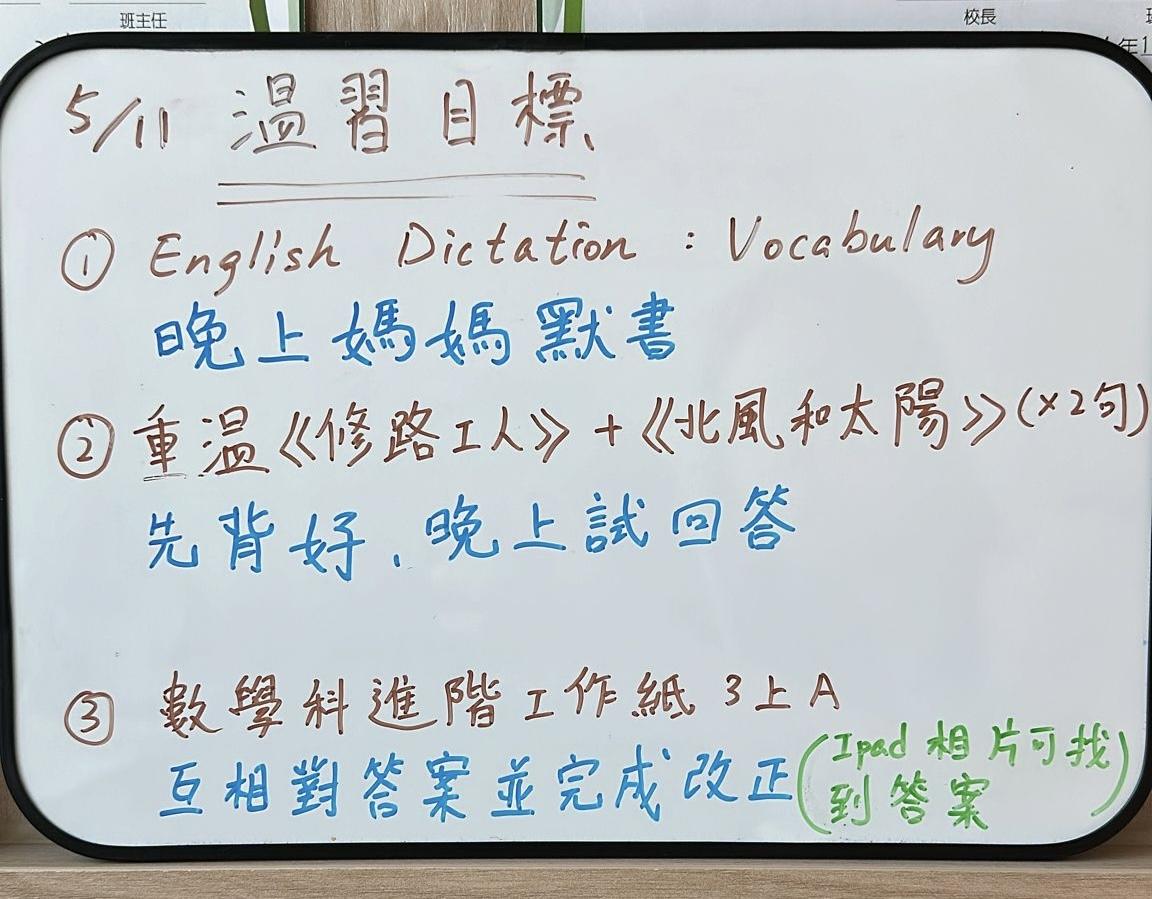 班主任
校長
年1
5/11 温習目標
① English Dictation : Vocabulary
晚上媽媽默書
② 重温《修路工人》+《北風和太陽》(×2句)
先背好，晚上試回答
③ 數學科進階工作紙 3上A
互相對答案並完成改正(Ipad相片可找
到答案)